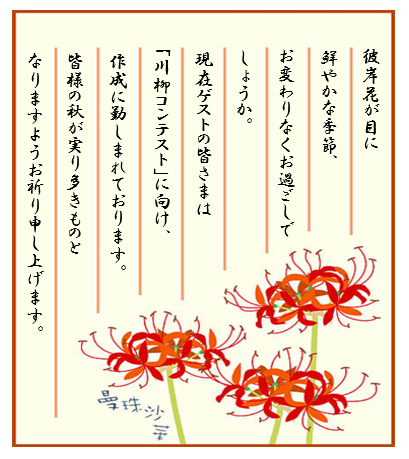 彼岸花が目に
鮮やかな季節、
お変わりなくお過ごしで
しょうか。
現在ゲストの皆さまは
「川柳コンテスト」に向け、
作成に勤しまれております。
皆様の秋が実り多きものと
なりますようお祈り申し上げます。
曼珠沙華